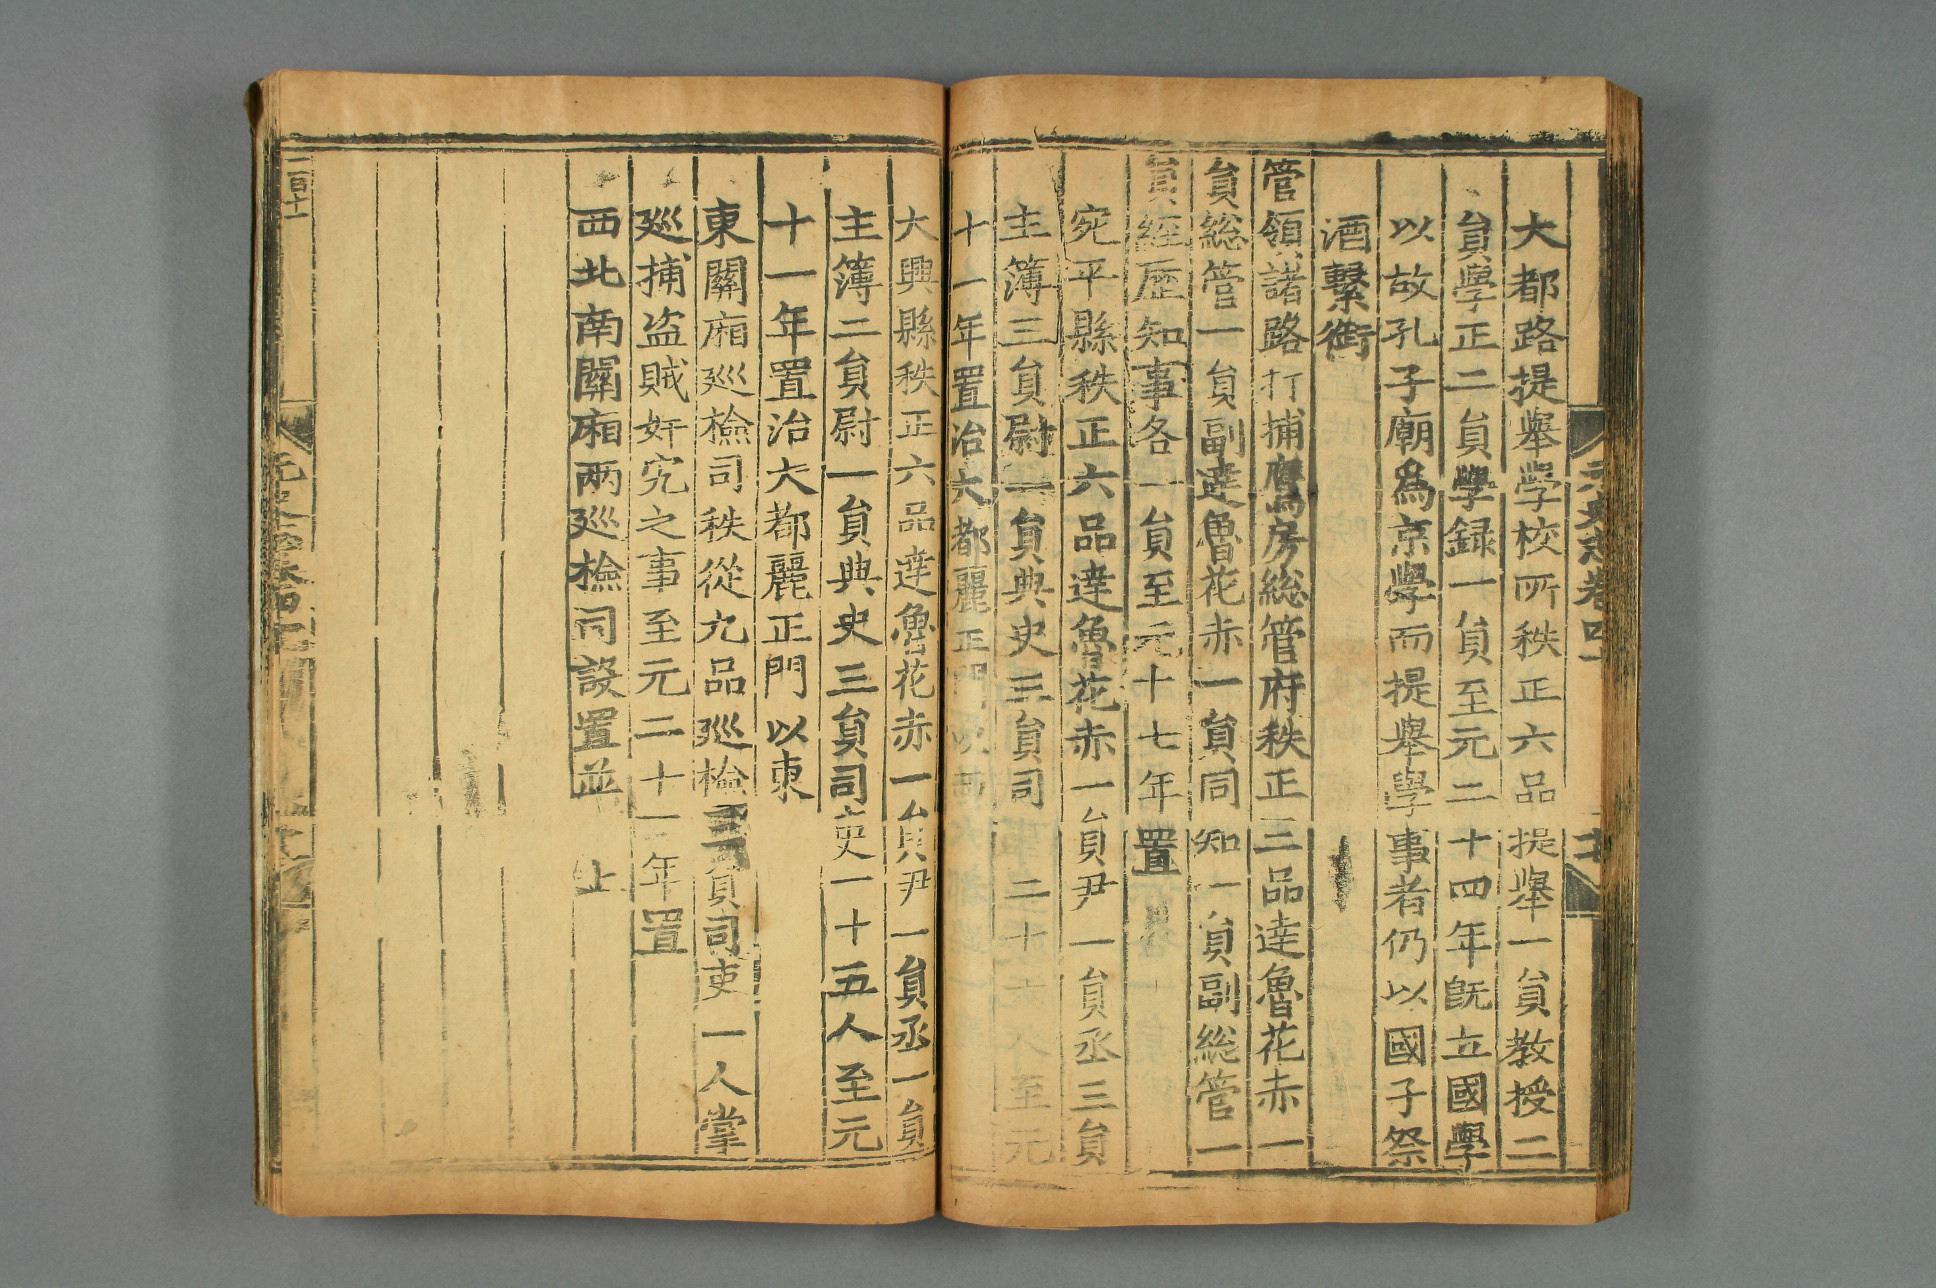 大都路提舉學校所秩正六品提舉一員教授二
員學正二員學録一員至元二十四年既立國學
以故孔子廟爲京學而提舉學事者仍以國子祭
酒繫銜
管領諸路打捕鷹房総管府秩正三品達魯花赤一
員総管一員副達魯花赤一員同知一員副総管一
員經歷知事各一員至元十七年置
宛平縣秩正六品達魯花赤一員尹一員丞三員
主簿三員尉一員典史三員司 二十六人至元
十一年置治大都麗正門以西
大興縣秩正六品達魯花赤一員尹一員丞一員
主簿二員尉一員典史三員司吏一十五人至元
十一年置治大都麗正門以東
東關廂廵檢司秩從九品廵檢三員司吏一人掌
廵捕盜賊奸宄之事至元二十一年置
西北南關廂兩廵檢司設置並止